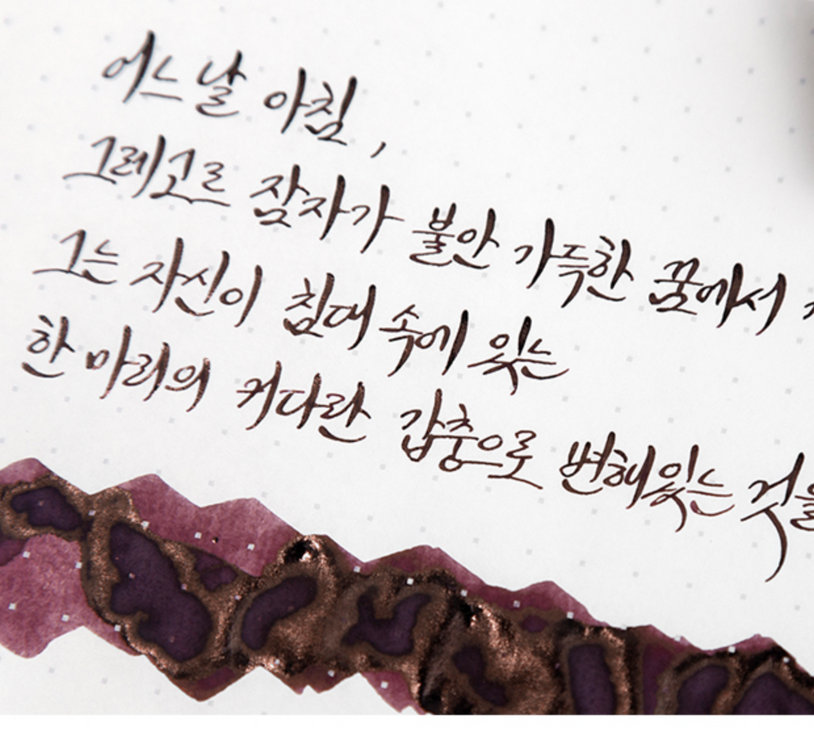 어느날 아침,
그레고르 잠자가 불안 가득한 꿈에서
그는 자신이 침대 속에 있는
한 마리의 커다란 갑충으로 변해있는 것을